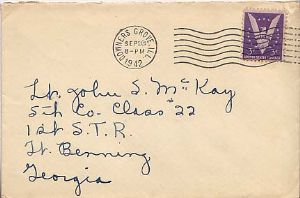 DOWNERS GROVE, ILL.
SEP
8-PM
1942
3¢
UNITED STATES
Lt. John S. McKay
5th Co- Class #22
1st S.T.R.
Ft. Benning
Georgia